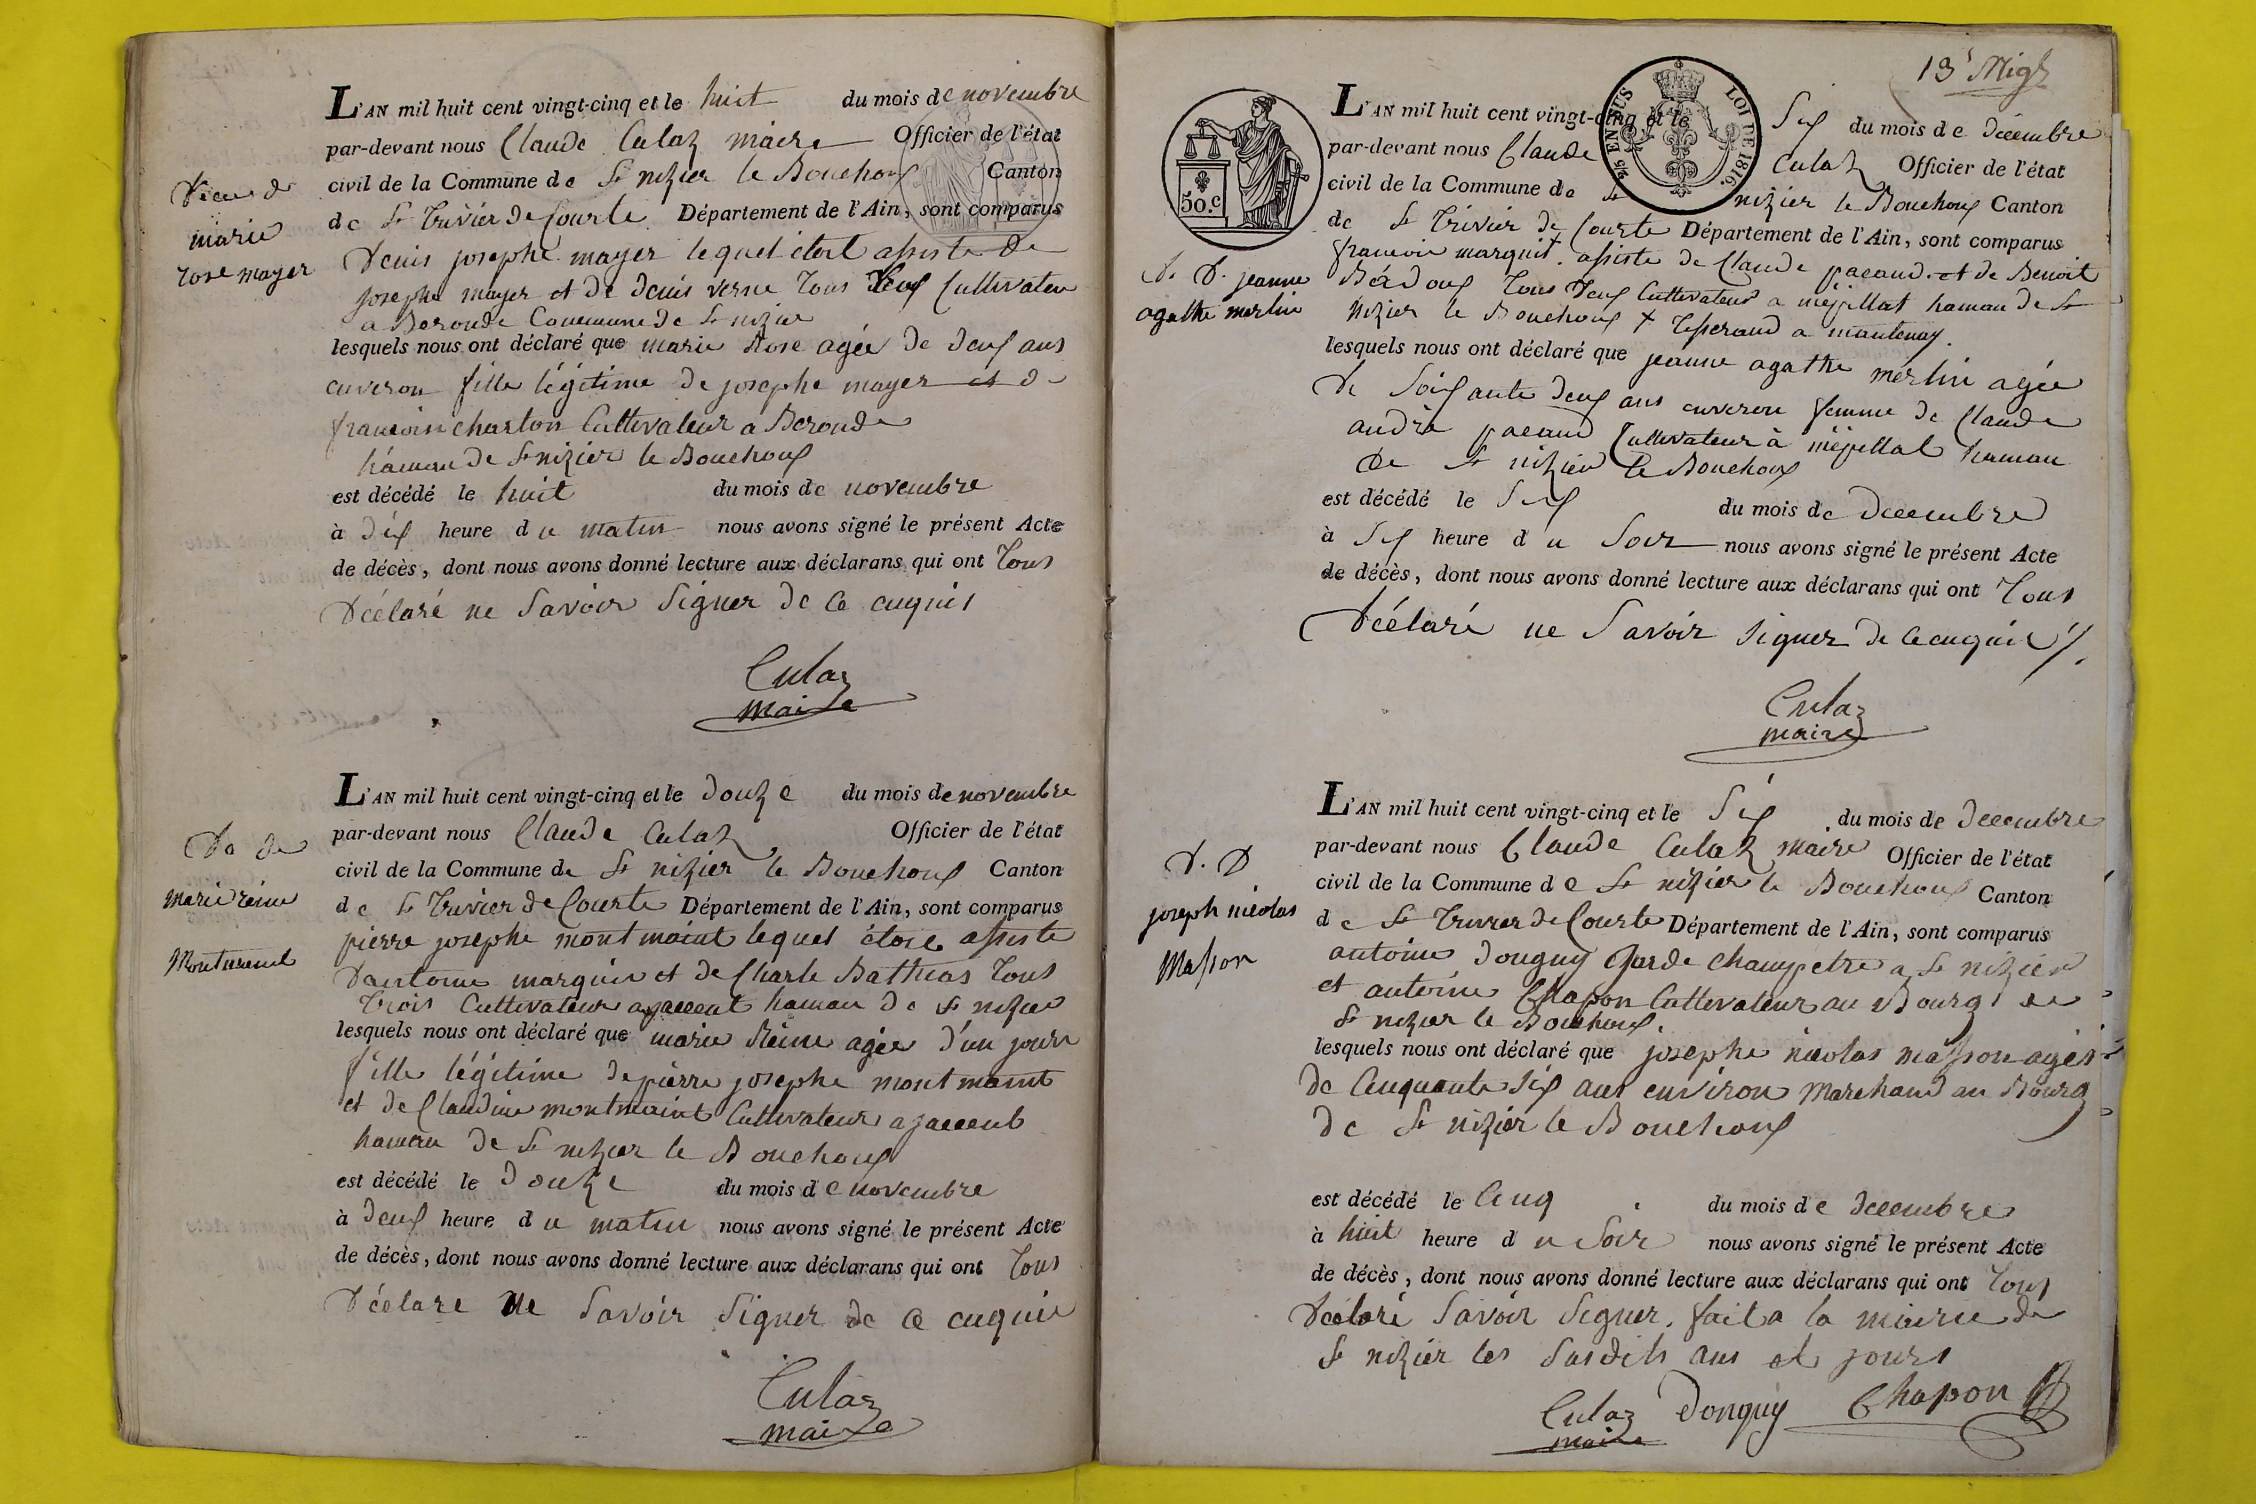 L'AN mil huit cent vingt-cinq et le huit du mois de novembre
par-devant nous Claude Culaz maire Officier de l'état
civil de la Commune de St nizier le Bouchoux Canton
de St Trivier de Courte Département de l'Ain, sont comparus
Denis josephe mayer lequel étoit assisté de
josephe mayer et de denis verne Tous deux Cultivateur
a Beronde Commune de St nizier
lesquels nous ont déclaré que marie Rose agée de deux ans
environ fille légitime de josephe mayer et de
francoise charlon Cultivateur a Beronde
hámau de St nizier le Bouchoux
est décédé le huit du mois de novembre
à dix heure du matin nous avons signé le présent Acte
de décès, dont nous avons donné lecture aux déclarans qui ont Tous
Déclaré ne Savoir Signer de ce enquis
Culaz
maire
Déces de
marie
rose mayer
L'AN mil huit cent vingt-cinq et le douze du mois de novembre
par-devant nous Claude Culaz Officier de l'état
civil de la Commune de St nizier le Bouchoux Canton
de St Trivier de Courte Département de l'Ain, sont comparus
pierre josephe montmaint lequel étoit assisté
Dantoine marquis et de Charle Bathias Tous
Trois Cultivateur a jaccent hamau de St nizier
lesquels nous ont déclaré que marie Reine agée d'un jour
fille légitime de pierre josephe montmaint
et de Claudine montmaint Cultivateur a jaccent
hamau de St nizier le Bouchoux
est décédé le Douze du mois de novembre
à deux heure du matin nous avons signé le présent Acte
de décès, dont nous avons donné lecture aux déclarans qui ont Tous
Déclaré Ne Savoir Signer de ce enquis
Culaz
maire
Do de
marie reine
Montmaint
13
50.c
EN SUS LOI DE 1816.
L'AN mil huit cent vingt-cinq et le Six du mois de décembre
par-devant nous Claude Culaz Officier de l'état
civil de la Commune de St nizier le Bouchoux Canton
de St Trivier de Courte Département de l'Ain, sont comparus
francois marquit assisté de Claude pacaud et de Benoit
Béidoux Tous deux Cultivateur a mépillat hamau de St
nizier le Bouchoux + Tisserand a mantenay.
lesquels nous ont déclaré que jeanne agathe merlin agée
de Soixante deux ans environ femme de Claude
andré pacaud Cultivateur à mépillat hamau
de St nizier le Bouchoux
est décédé le Six du mois de Décembre
à Six heure du Soir nous avons signé le présent Acte
de décès, dont nous avons donné lecture aux déclarans qui ont Tous
Déclaré ne Savoir Signer de ce enquis
Culaz
maire
D. D. jeanne
agathe merlin
L'AN mil huit cent vingt-cinq et le Six du mois de Décembre
par-devant nous Claude Culaz maire Officier de l'état
civil de la Commune de St nizier le Bouchoux Canton
de St Trivier de Courte Département de l'Ain, sont comparus
antoine Donguy Garde Champetre a St nizier
et antoine Chapon Cultivateur au Bourg de
St nizier le Bouchoux.
lesquels nous ont déclaré que josephe nicolas masson agés
de Cinquante Six ans environ Marchand au Bourg
de St nizier le Bouchoux
est décédé le Cinq du mois de Décembre
à huit heure du Soir nous avons signé le présent Acte
de décès, dont nous avons donné lecture aux déclarans qui ont Tous
Déclaré Savoir Signer. fait a la mairie de
St nizier les Susdits ans et jours
Culaz Donguy Chapon
maire
D. D
joseph nicolas
Masson